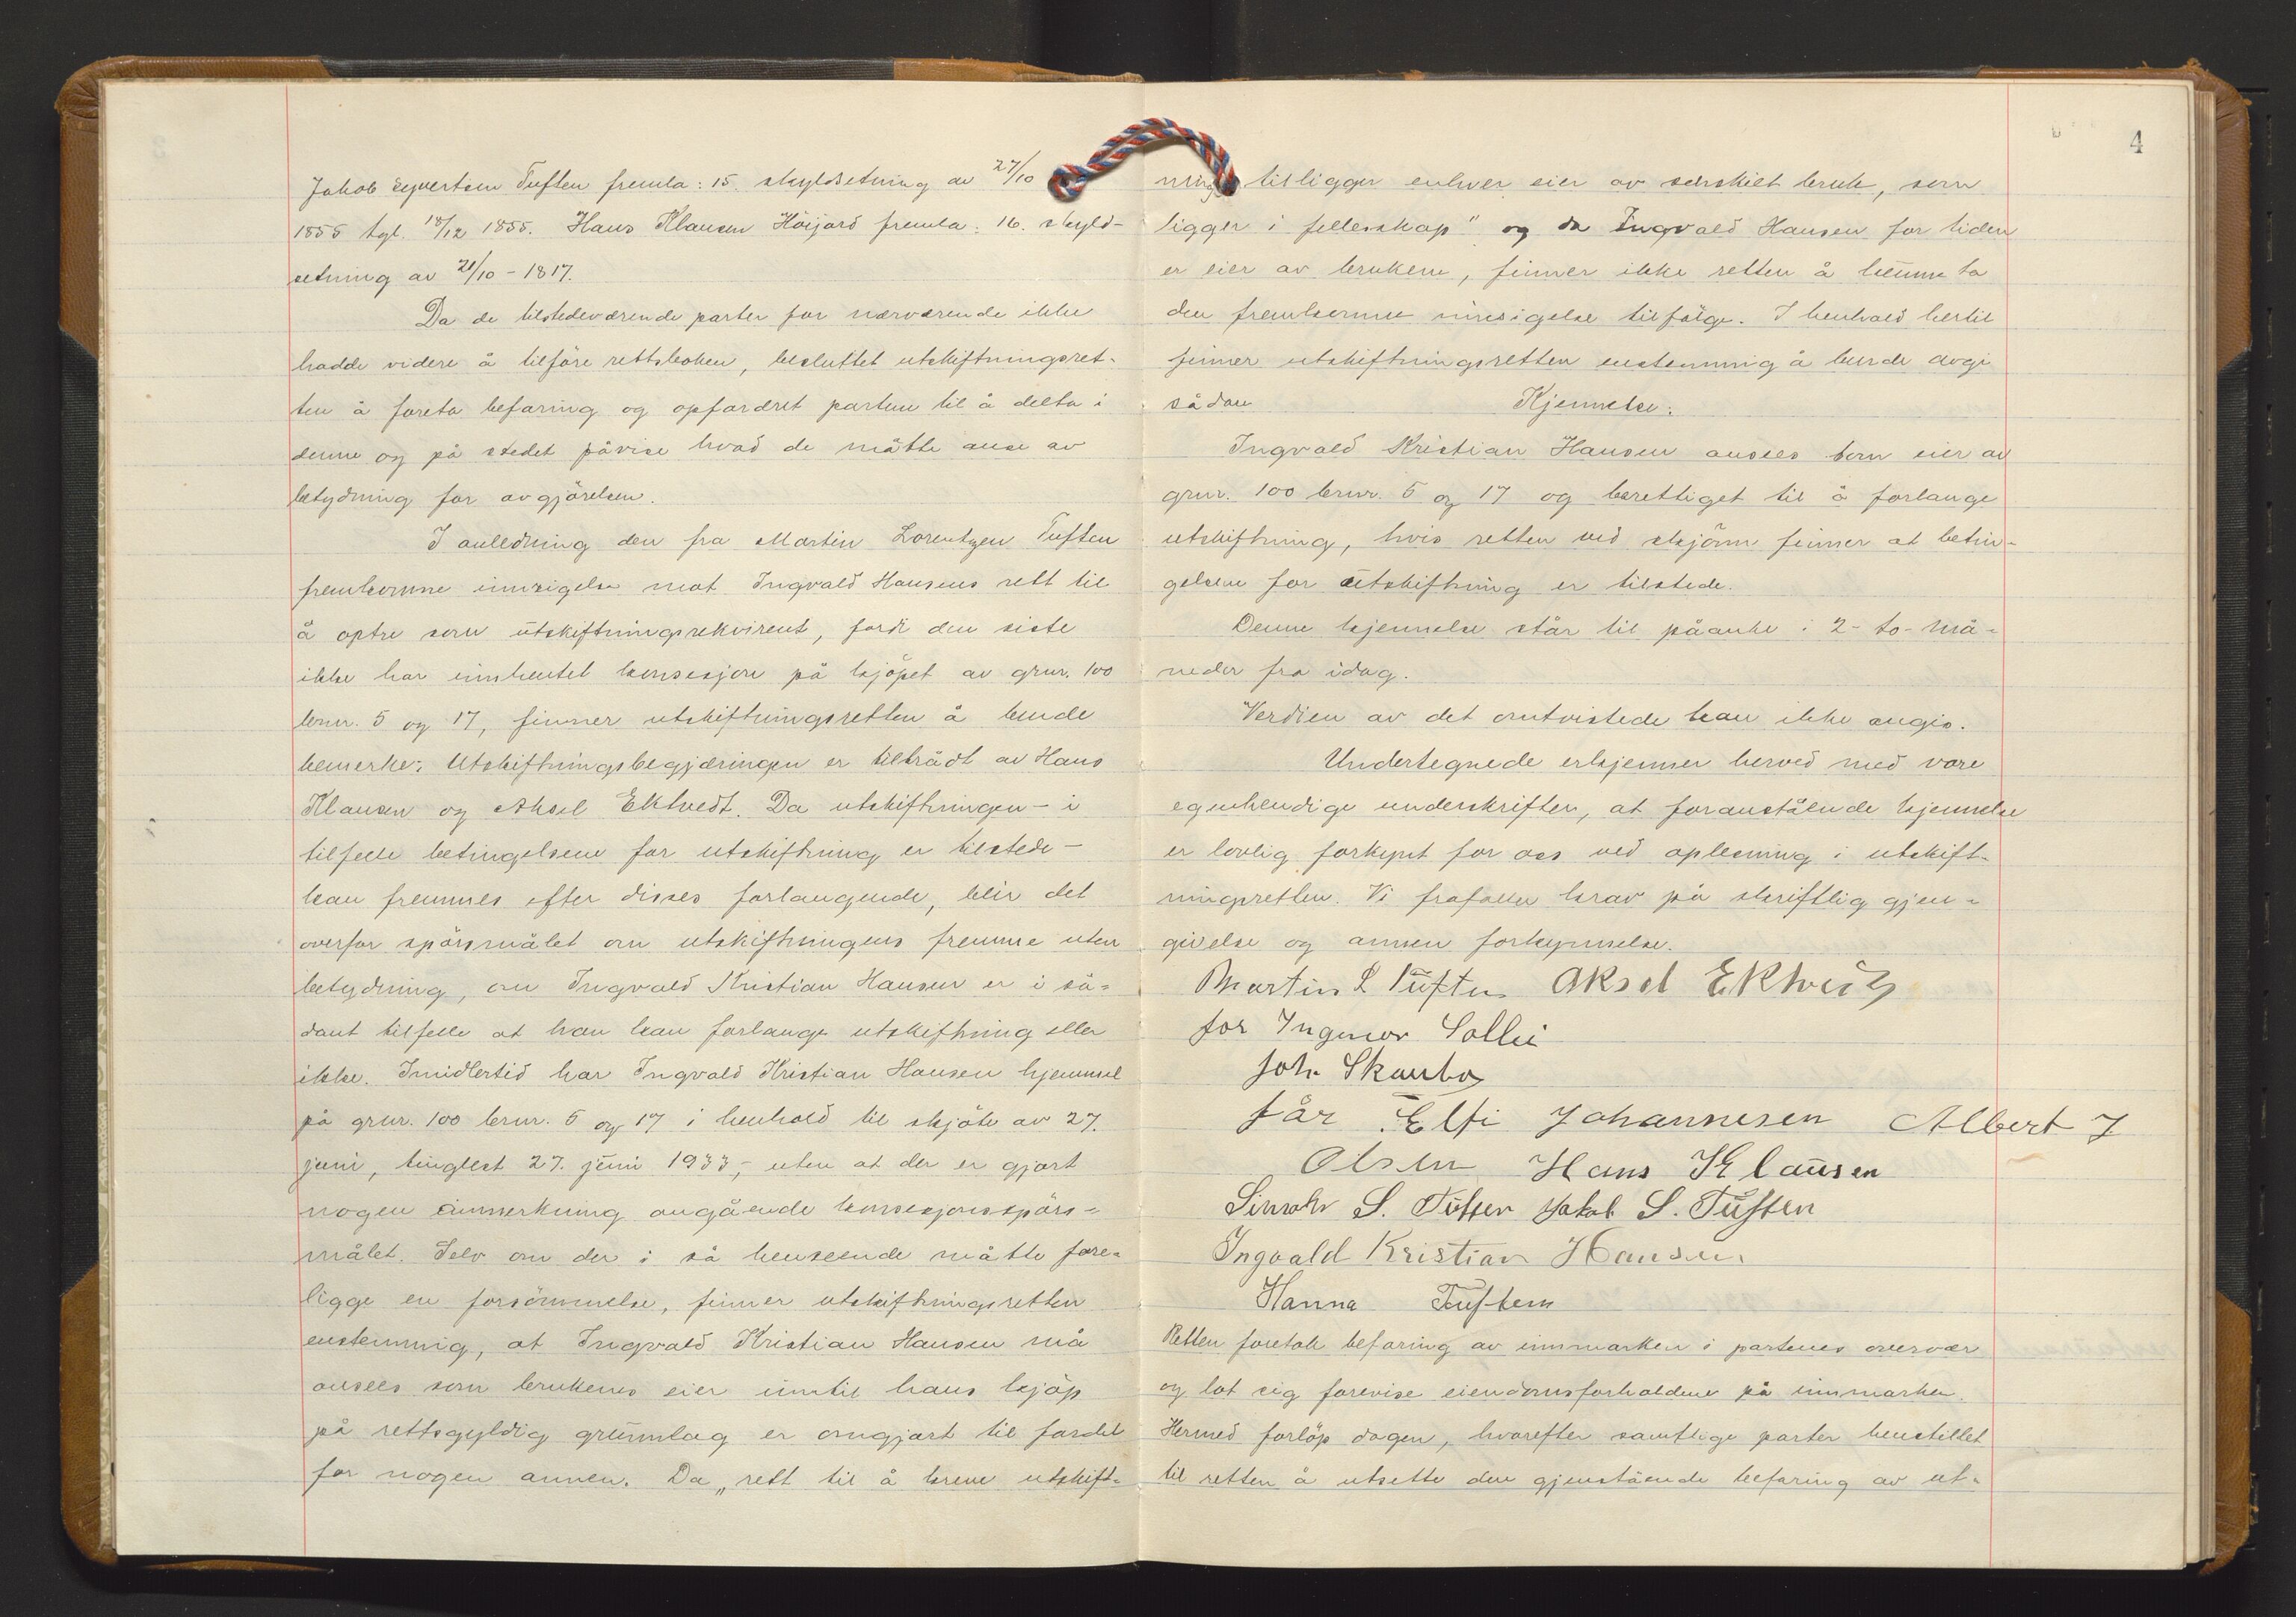 Jakob Syvertsen Tuften fremla: 15. skyldsetning av 27/10
1855 tgl. 18/12 1855. Hans Klausen Höijord fremla: 16. skyld-
setning av 21/10 - 1817.
Da de tilstedeværende parter for nærværende ikke
hadde videre å tilföre rettsboken, besluttet utskiftningsret-
ten å foreta befaring og opfordret partene til å delta i
denne og på stedet påvise hvad de måtte anse av
betydning for avgjörelsen.
I anledning den fra Martin Lorentzen Tuften
fremkomne innsigelse mot Ingvald Hansens rett til
å optre som utskiftningsrekvirent, fordi den siste
ikke har innhentet konsesjon på kjöpet av grnr. 100
brnr. 5 og 17, finner utskiftningsretten å burde
bemerke: Utskiftningsbegjæringen er tiltrådt av Hans
Klausen og Aksel Ektvedt. Da utskiftningen - i
tilfelle betingelsene for utskiftning er tilstede -
kan fremmes efter disses forlangende, blir det
overfor spörsmålet om utskiftningens fremme uten
betydning, om Ingvald Kristian Hansen er i så-
dant tilfelle at han kan forlange utskiftning eller
ikke. Imidlertid har Ingvald Kristian Hansen hjemmel
på grnr. 100 brnr. 5 og 17 i henhold til skjöte av 27.
juni, tinglest 27. juni 1933, - uten at der er gjort
nogen anmerkning angående konsesjonsspörs-
målet. Selv om der i så henseende måtte fore-
ligge en forsömmelse, finner utskiftningsretten
enstemmig, at Ingvald Kristian Hansen må
ansees som brukenes eier inntil hans kjöp
på rettsgyldig grunnlag er omgjort til fordel
for nogen annen. Da „rett til å kreve utskift-
4
ning tilligger enhver eier av særskilt bruk, som
ligger i fellesskap" og da Ingvald Hansen for tiden
er eier av brukene, finner ikke retten å kunne ta
den fremkomne innsigelse tilfölge. I henhold hertil
finner utskiftningsretten enstemmig å burde avgi
sådan Kjennelse:
Ingvald Kristian Hansen ansees som eier av
grnr. 100 brnr. 5 og 17 og berettiget til å forlange
utskiftning, hvis retten ved skjönn finner at betin-
gelsene for utskiftning er tilstede.
Denne kjennelse står til påanke i 2 - to - må-
neder fra idag.
Verdien av det omtvistede kan ikke angis.
Undertegnede erkjenner herved med våre
egenhendige underskrifter, at foranstående kjennelse
er lovlig forkynt for oss ved oplesning i utskift-
ningsretten. Vi frafaller krav på skriftlig gjen-
givelse og annen forkynnelse.
Martin L Tuften Aksel Ektvedt
for Ingmar Sollie
Joh. Skaubo
får Elfi Johannesen Albert J
Olsen Hans Klausen
S. Tuften Jakob S. Tuften
Ingvald Kristian Hansen
Hanna Tuften
Retten foretok befaring av innmarken i partenes overvær
og lot sig forevise eiendomsforholdene på innmarken.
Hermed forlöp dagen, hvorefter samtlige parter henstillet
til retten å utsette den gjenstående befaring av ut-